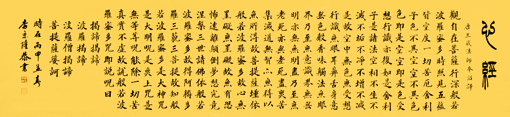 心經
唐三藏法師奉詔譯
觀自在菩薩行深般若
波羅蜜多時照見五蘊
皆空度一切苦厄舍利
子色不異空空不異色
色即是空空即是色受
想行識亦復如是舍利
子是諸法空相不生不
滅不垢不淨不增不減
是故空中無色無受想
行識無眼耳鼻舌身意
無色聲香味觸法無眼
界乃至無意識界無無
明亦無無明盡乃至無
老死亦無老死盡無苦
集滅道無智亦無得以
無所得故菩提薩埵依
般若波羅蜜多故心無
罣礙無罣礙故無有恐
怖遠離顛倒夢想究竟
涅槃三世諸佛依般若
波羅蜜多故得阿耨多
羅三藐三菩提故知般
若波羅蜜多是大神咒
是大明咒是無上咒是
無等等咒能除一切苦
真實不虛故說般若波
羅蜜多咒即說咒曰
揭諦揭諦
波羅揭諦
波羅僧揭諦
菩提薩婆訶
時在丙申孟春